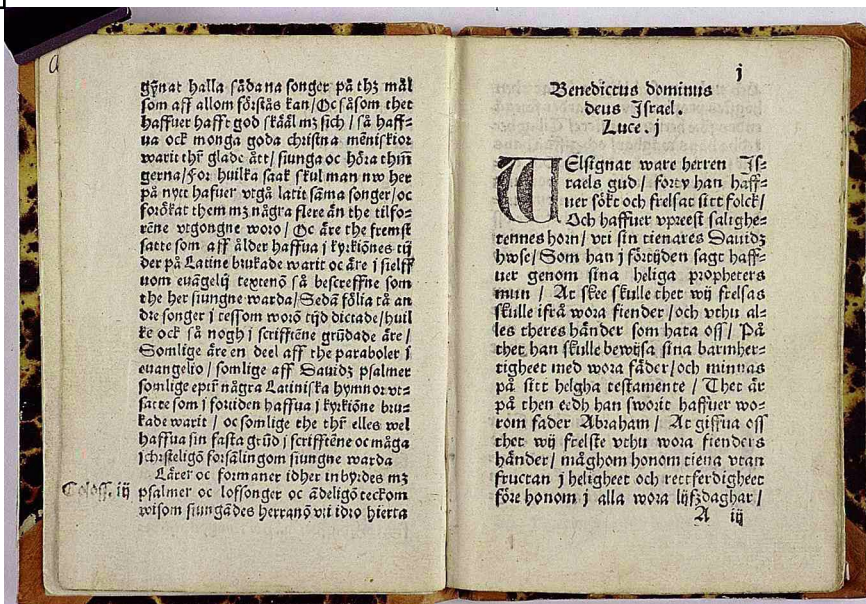 gynat halla sådana songer på thz mål
som aff allom förstås kan/Oc såsom thet
haffuer hafft god skåål mz sich / så haff-
ua ock monga goda christna mēniskior
warit thr̄ glade ått/ siunga oc höra thm̄
gerna/For huilka saak skul man nw her
på nytt hafuer vtgå latit såma songer/oc
forökat them mz några flere än the tilfo-
rēne vtgongne woro / Oc äre the fremst
satte som aff ålder haffua j kyrkiōnes tij
der på Latine brukade warit oc äre j sielff
uom euāgelij textenō så bescreffne som
the her siungne warda/Sedā fölia tå an
dre songer j tessom worō tijd dictade/huil
ke ock så nogh j scrifftēne grūdade äre /
Somlige äre en deel aff the paraboler j
euangelio / somlige aff Dauidz psalmer
somlige eptr̄ några Latiniska hymnor vt-
satte som j fortiden haffua j kyrkiōne bru-
kade warit / oc somlige the thr̄ elles wel
haffua sin fasta grūd j scrifftēne oc måga
j christeligō forsålingom siungne warda
Lärer oc formaner idher inbyrdes mz
Coloss. iij psalmer oc loffsonger oc ādeligō teckom
wisom siungādes herranō vti idro hierta
j
Benedictus dominus
deus Israel.
Luce. j
WElsignat ware herren Is-
raels gud / forty han haff-
uer sökt och frelsat sitt folck/
Och haffuer vpreest salighe-
tennes horn/ vti sin tienares Dauidz
hwse/ Som han j förtijden sagt haff-
uer genom sina heliga propheters
mun / At skee skulle thet wij frelsas
skulle ifrå wora fiender /och vthu al-
les theres händer som hata oss/ På
thet han skulle bewijsa sina barmher-
tigheet med wora fäder/och minnas
på sitt helgha testamente / Thet är
på then eedh han sworit haffuer wo-
rom fader Abraham / At giffua oss
thet wij frelste vthu wora fienders
händer/ måghom honom tiena vtan
fructan j heligheet och rettferdigheet
före honom j alla wora lijfzdaghar /
A iij